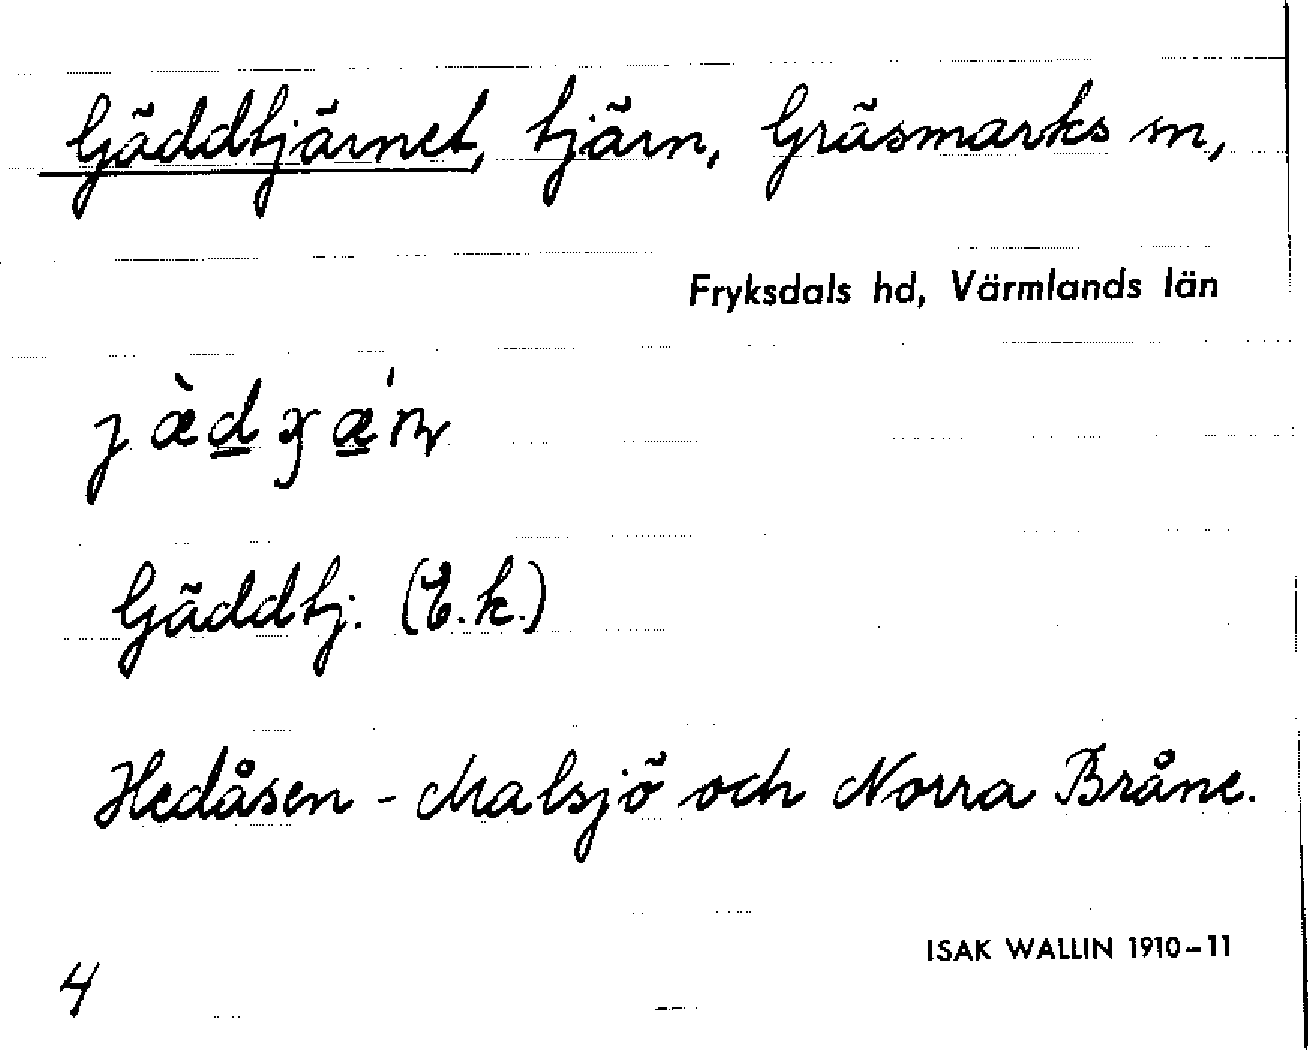 Gäddtjärnet, tjärn, Gräsmarks sn,
Fryksdals hd, Värmlands län
Gäddtj. (E.k.)
Hedåsen - Malsjö och Norra Bråne.
ISAK WALLIN 1910-11
4